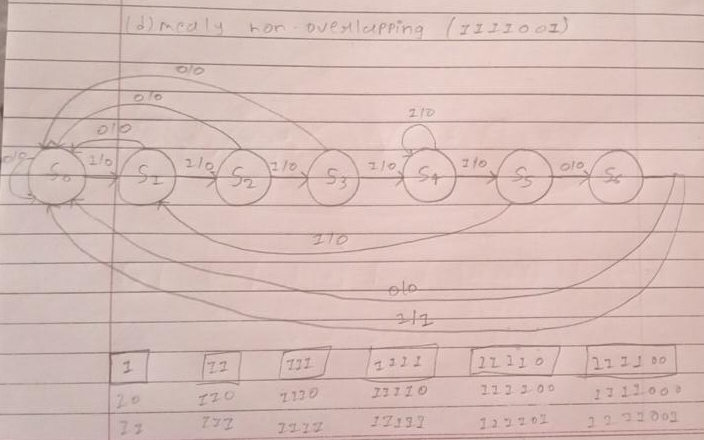 (d) mealy non-overlapping (1111001)
0/0
0/0
1/0
0/0
0/0 S0 1/0 S1 1/0 S2 1/0 S3 1/0 S4 1/0 S5 0/0 S6
1/0
0/0
1/1
1 11 111 1111 11110 111100
10 110 1110 11110 111100 1111000
11 111 1111 11111 111101 1111001